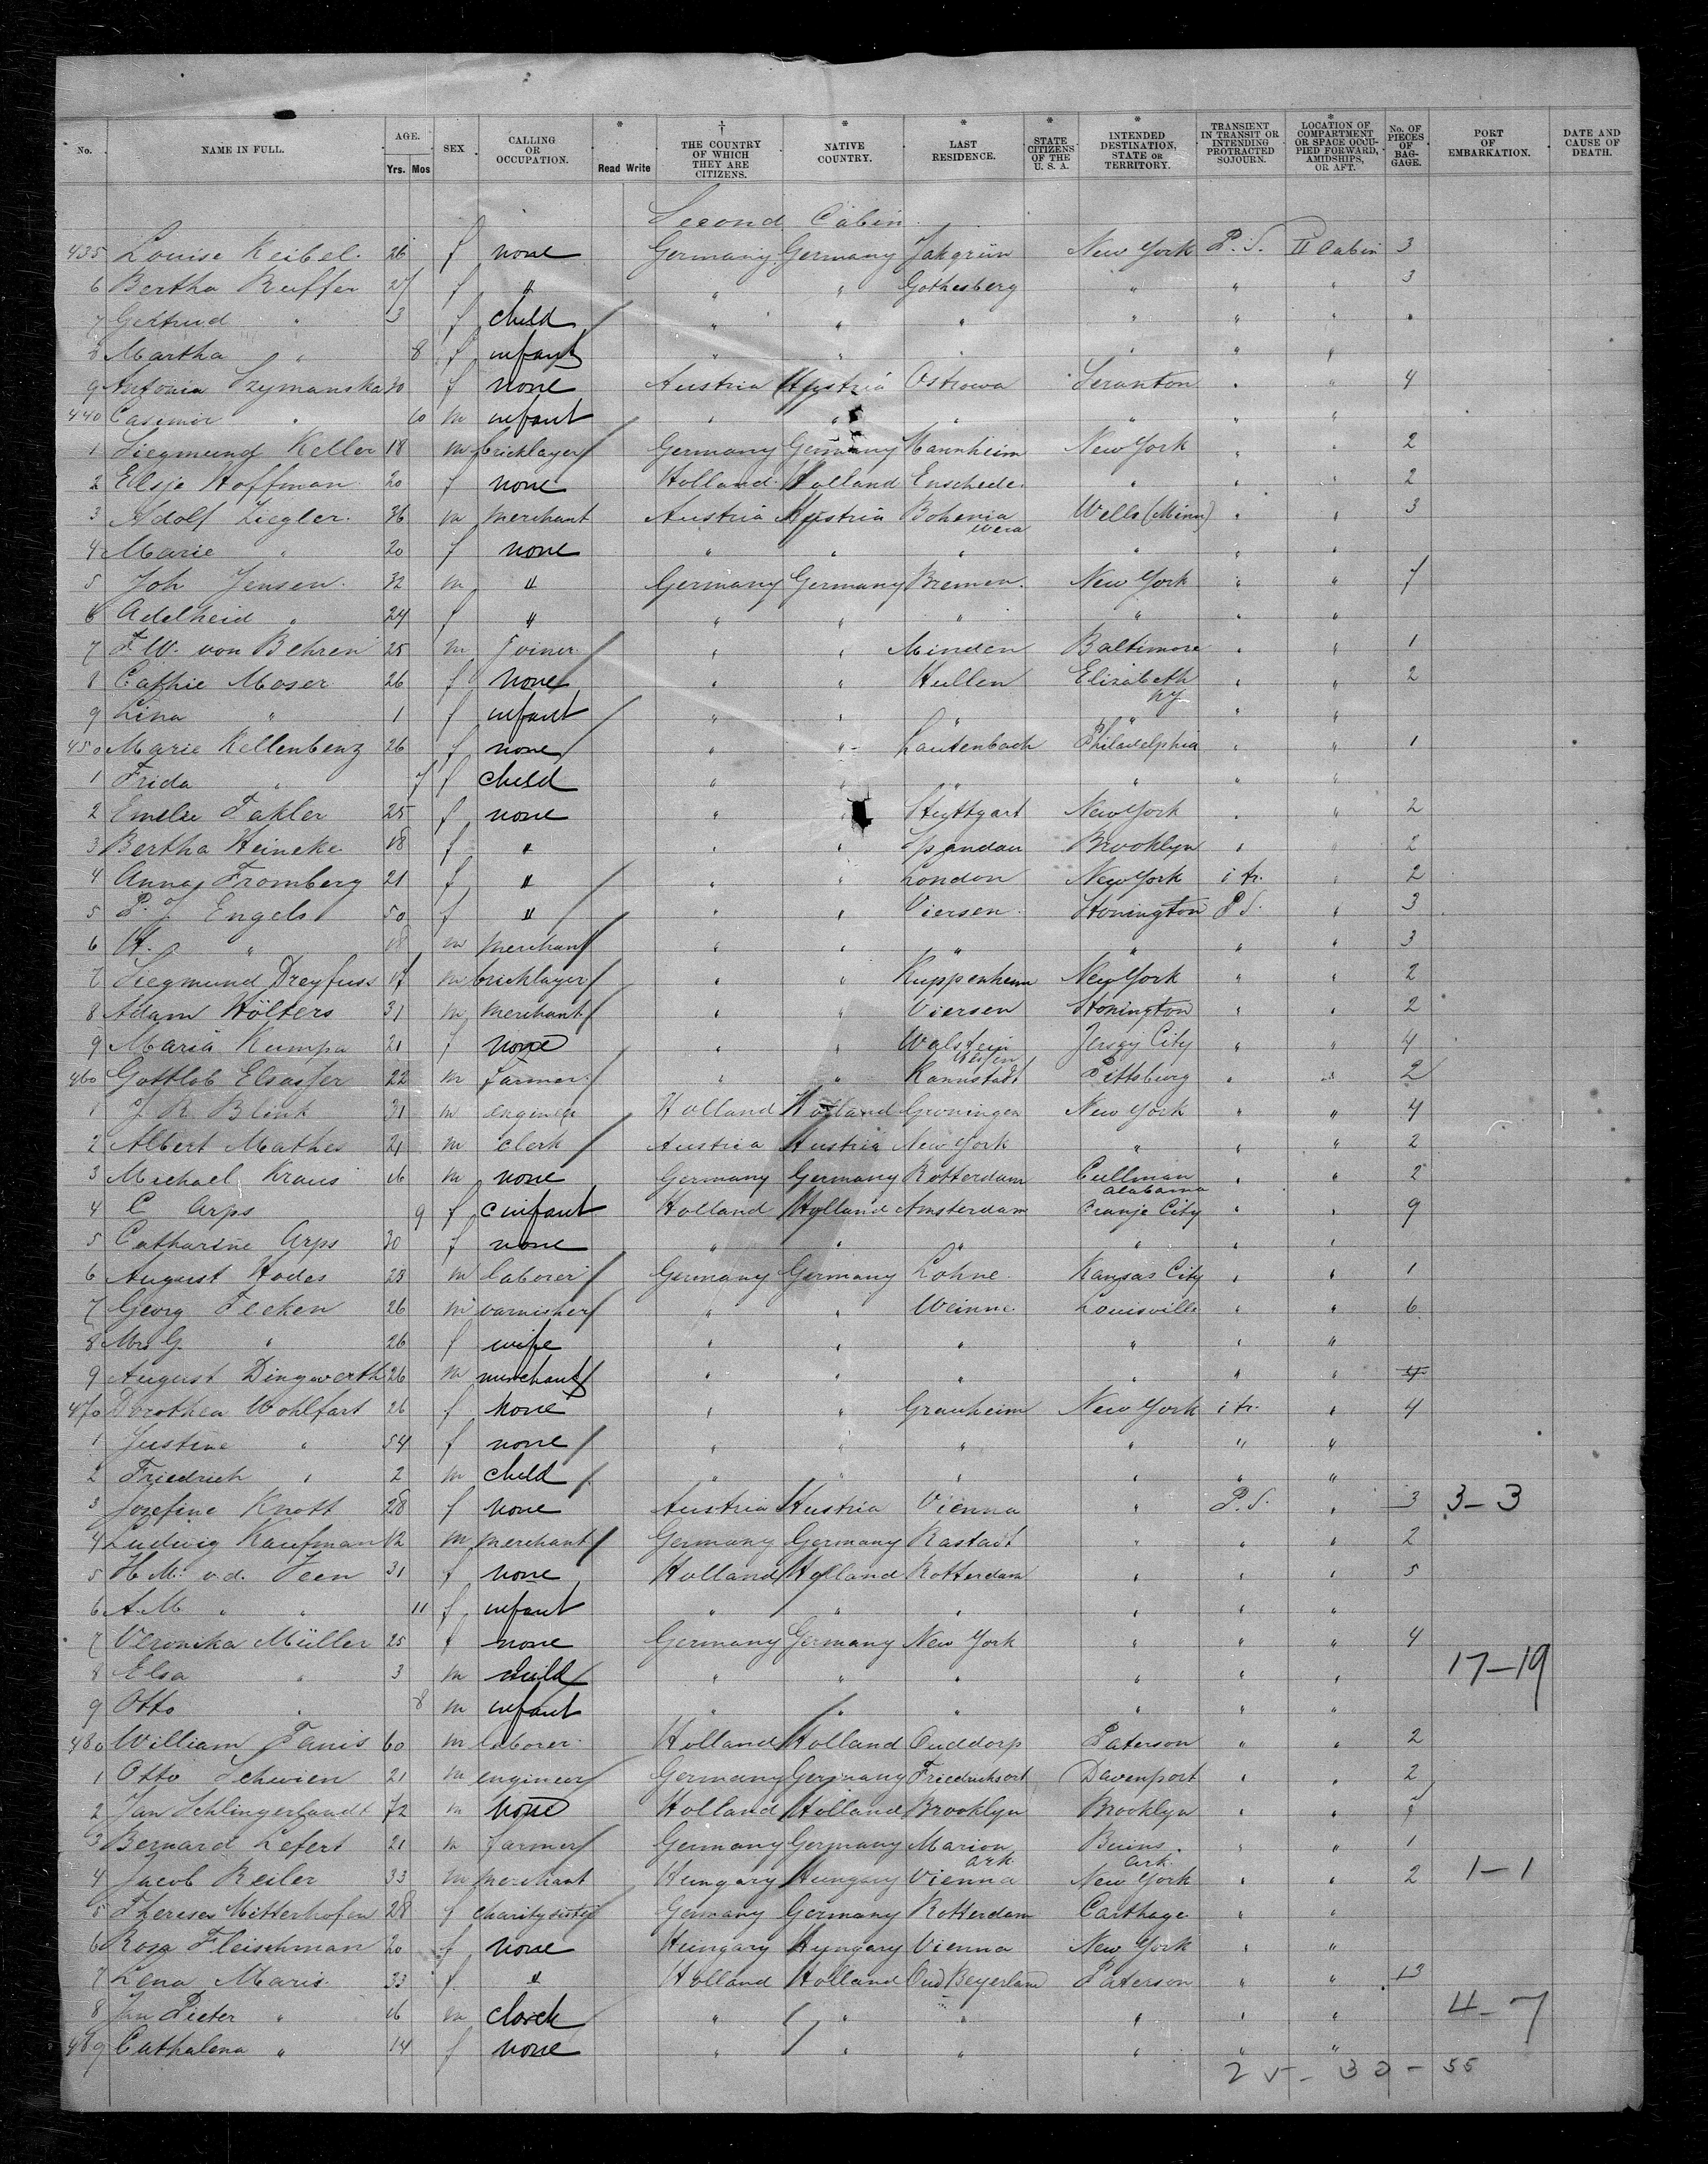 No. NAME IN FULL. AGE. Yrs. Mos SEX CALLING OR OCCUPATION. * Read Write † THE COUNTRY OF WHICH THEY ARE CITIZENS. * NATIVE COUNTRY. * LAST RESIDENCE. * STATE CITIZENS OF THE U. S. A. * INTENDED DESTINATION, STATE OR TERRITORY. TRANSIENT IN TRANSIT OR INTENDING PROTRACTED SOJOURN. * LOCATION OF COMPARTMENT OR SPACE OCCUPIED FORWARD, AMIDSHIPS, OR AFT. No. OF PIECES OF BAGGAGE. PORT OF EMBARKATION. DATE AND CAUSE OF DEATH.
Second Cabin
435 Louise Keibel 26 f none Germany Germany New York P. S. II Cabin 3
6 Bertha Reiffer 27 f " " " Gothesberg " " " 3
7 Gertrud " 3 f child " " " " " "
8 Martha " 8 f infant " " " " " "
9 Antonia Szymanska 30 f none Austria Austria Ostrowa Scranton " " 4
440 Casimir " 10 m infant " " " " " "
1 Siegmund Keller 18 m bricklayer Germany Germany Mannheim New York " " 2
2 Elsje Hoffman 20 f none Holland Holland Enschede " " " 2
3 Adolf Ziegler 36 m merchant Austria Austria Bohemia Wells (Minn) " " 3
4 Marie " 20 f none " " " " " "
5 Joh Jensen 32 m " Germany Germany Bremen New York " " 7
6 Adelheid " 24 f " " " " " " "
7 F. W. von Behren 25 m joiner " " Minden Baltimore " " 1
8 Cathie Moser 26 f none " " Hullen Elizabeth NJ " " 2
9 Lina " 1 f infant " " " " " "
450 Marie Kellenbenz 26 f none " " Lautenbach Philadelphia " " 1
1 Frida " 7 f child " " " " " "
2 Emelie Fakler 25 f none " " Stuttgart New York " " 2
3 Bertha Heineke 18 f " " " Spandau Brooklyn " " 2
4 Anna Fromberg 21 f " " " London New York i tr. " 2
5 P. J. Engels 50 f " " " Viersen Stonington P S. " 3
6 H. " 18 m merchant " " " " " " 3
7 Siegmund Dreyfuss 17 m bricklayer " " Kuppenheim New York " " 2
8 Adam Wölters 31 m merchant " " Viersen Stonington " " 2
9 Maria Kumpa 21 f none " " Jersey City " " 4
460 Gottlob Elsasser 22 m farmer " " Kannstadt Pittsburg " " 2
1 J. R. Blink 31 m engineer Holland Holland Groningen New York " " 4
2 Albert Mathes 21 m clerk Austria Austria New York " " " 2
3 Michael Kraus 16 m none Germany Germany Rotterdam Cullman Alabama " " 2
4 C Arps 9 f infant Holland Holland Amsterdam Oranje City " " 9
5 Catharine Arps 30 f none " " " " " "
6 August Hodes 23 m laborer Germany Germany Lohne Kansas City " " 1
7 Georg Tecken 26 m varnisher " " Louisville " " 6
8 Mrs G. " 26 f wife " " " " " "
9 August Dingwerth 26 m merchant " " " " " " 4
470 Dorothea Wohlfart 26 f none " " Grauheim New York i tr. " 4
1 Justine " 54 f none " " " " " "
2 Friedrich " 2 m child " " " " " "
3 Josefine Knott 28 f none Austria Austria Vienna " P. S. " 3 3-3
4 Ludwig Kaufman 12 m merchant Germany Germany Rastadt " " " 2
5 H. M. v.d. Veen 31 f none Holland Holland Rotterdam " " " 5
6 A. M. " " 11 f infant " " " " " "
7 Veronika Müller 25 f none Germany Germany New York " " " 4
8 Elsa " 3 m child " " " " " " 17-19
9 Otto " 8 m infant " " " " " "
480 William Tanis 60 m laborer Holland Holland Ouddorp Paterson " " 2
1 Otto Schwien 21 m engineer Germany Germany Friedrichsort Davenport " " 2
2 Jan Schlingerlandt 72 m none Holland Holland Brooklyn Brooklyn " "
3 Bernard Lefert 21 m farmer Germany Germany Marion Ark. Ark. " " 1
4 Jacob Reiler 33 m merchant Hungary Hungary Vienna New York " " 2 1-1
5 Therese Mitterhofen 28 f charity sister Germany Germany Rotterdam Carthage " "
6 Rosa Fleischman 20 f none Hungary Hungary Vienna New York " "
7 Lena Maris 33 f " Holland Holland Oud Beyerland Paterson " " 13
8 Jan Pieter " 16 m clerck " " " " " " 4-7
489 Cathalena " 14 f none " " " " " "
25-30-55